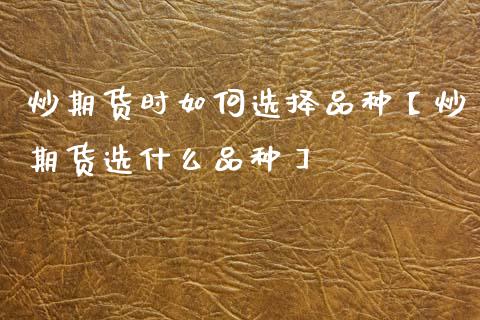 炒期货时如何选择品种【炒
期货选什么品种】